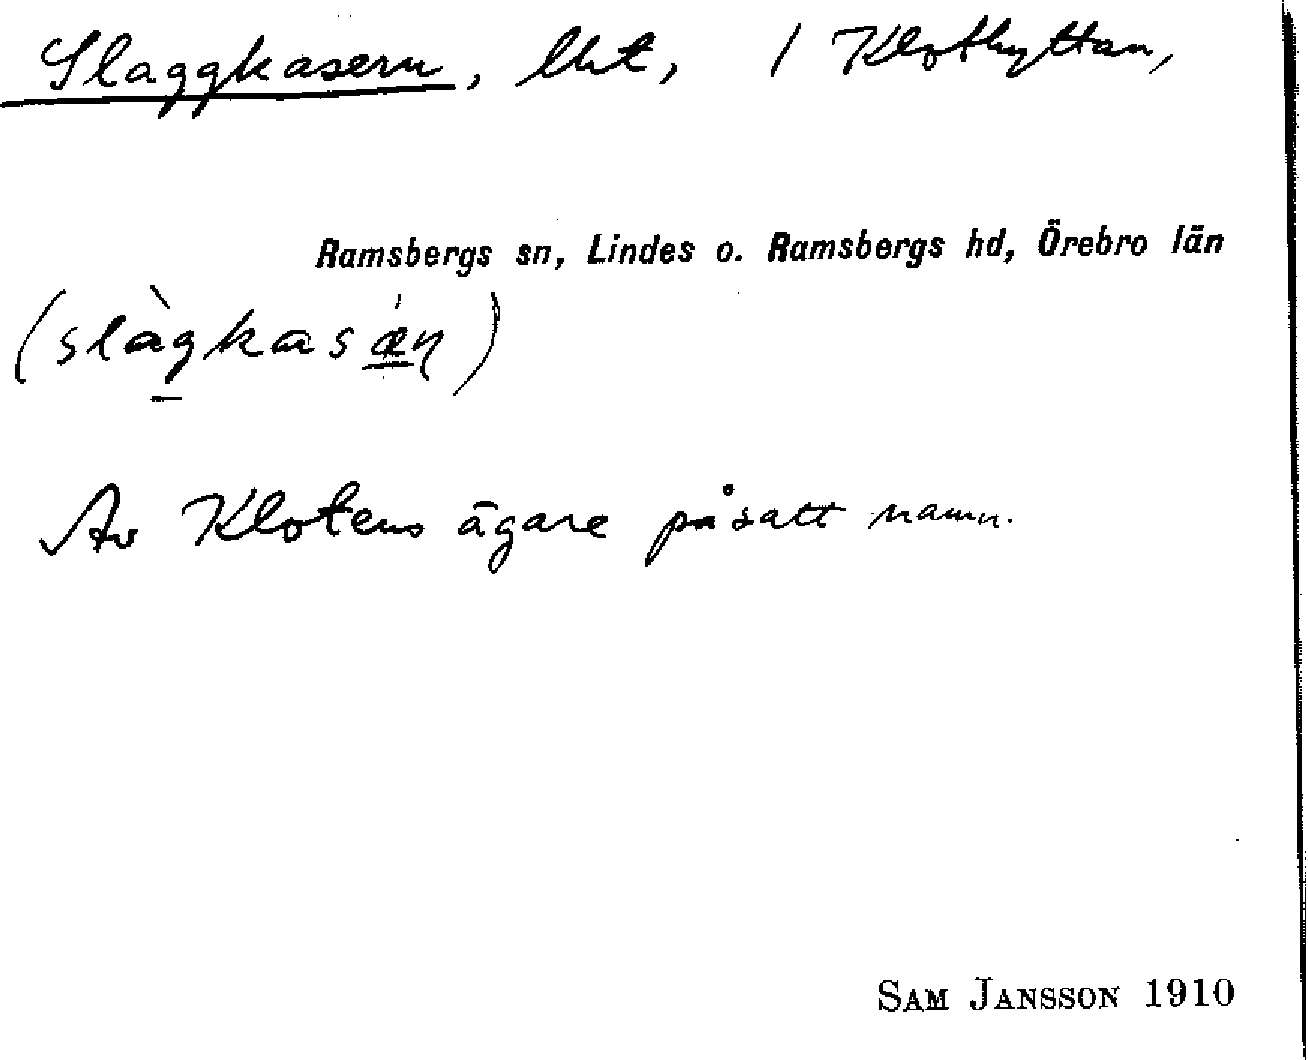 Slaggkasern, lht, / Klothyttan,
Ramsbergs sn, Lindes o. Ramsbergs hd, Örebro län
(slàgkasǽn)
Av Klotens ägare påsatt namn.
SAM JANSSON 1910